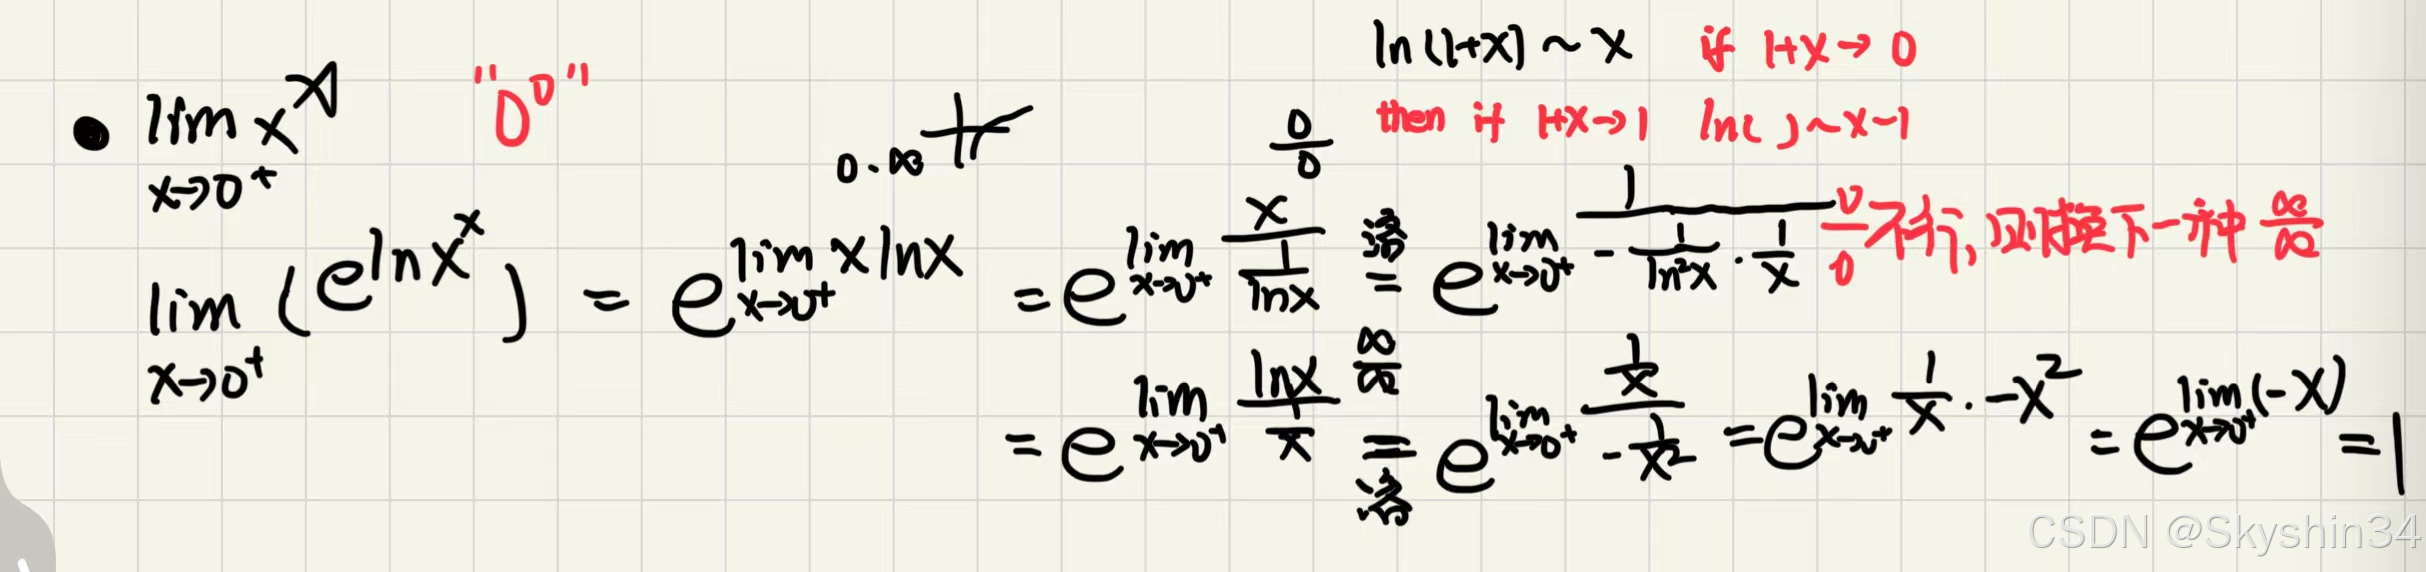 ln(1+x) ~ x if 1+x→0
then if 1+x→1 ln( ) ~ x-1
• lim_{x→0⁺} x^x "0⁰"
0·∞ 0/0
lim_{x→0⁺} (e^{ln x^x}) = e^{lim_{x→0⁺} x ln x} = e^{lim_{x→0⁺} x/(1/ln x)} 洛= e^{lim_{x→0⁺} 1/(-1/ln²x · 1/x)} 0/0 不行,则换下一种 ∞/∞
= e^{lim_{x→0⁺} ln x/(1/x)} ∞/∞ =洛 e^{lim_{x→0⁺} (1/x)/(-1/x²)} = e^{lim_{x→0⁺} 1/x · -x²} = e^{lim_{x→0⁺} (-x)} = 1
CSDN @Skyshin34